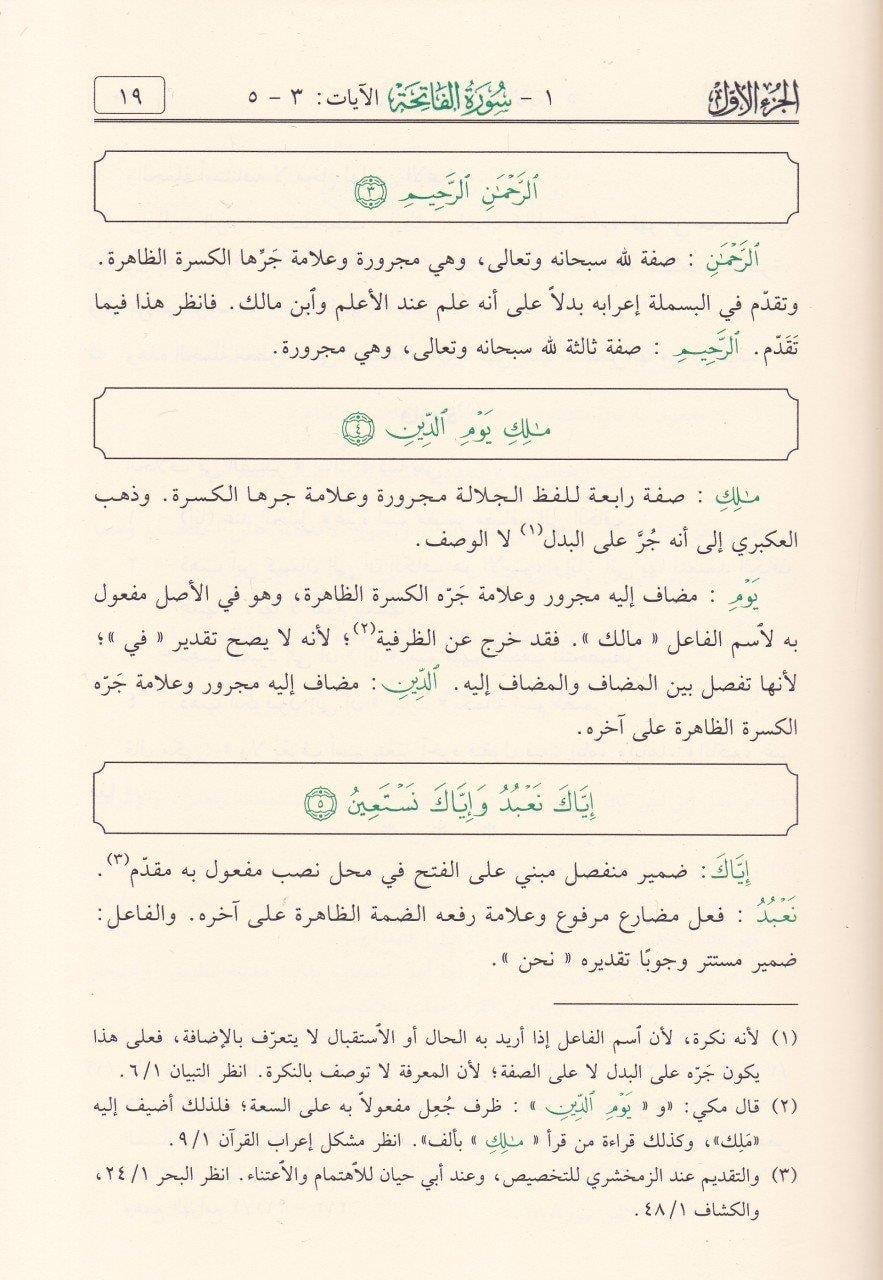 الجزء الأول ١ - سُورَةُ الفَاتِحَة الآيات: ٣ - ٥ ١٩
ٱلرَّحْمَٰنِ ٱلرَّحِيمِ ٣
ٱلرَّحْمَٰنِ : صفة لله سبحانه وتعالى، وهي مجرورة وعلامة جَرِّها الكسرة الظاهرة.
وتقدّم في البسملة إعرابه بدلاً على أنه علم عند الأعلم وٱبن مالك. فانظر هذا فيما
تَقَدّم. ٱلرَّحِيمِ : صفة ثالثة لله سبحانه وتعالى، وهي مجرورة.
مَٰلِكِ يَوْمِ ٱلدِّينِ ٤
مَٰلِكِ : صفة رابعة للفظ الجلالة مجرورة وعلامة جرها الكسرة. وذهب
العكبري إلى أنه جُرَّ على البدل(١) لا الوصف.
يَوْمِ : مضاف إليه مجرور وعلامة جَرّه الكسرة الظاهرة، وهو في الأصل مفعول
به لٱسم الفاعل « مالك ». فقد خرج عن الظرفية(٢)؛ لأنه لا يصح تقدير « في »؛
لأنها تفصل بين المضاف والمضاف إليه. ٱلدِّينِ : مضاف إليه مجرور وعلامة جَرّه
الكسرة الظاهرة على آخره.
إِيَّاكَ نَعْبُدُ وَإِيَّاكَ نَسْتَعِينُ ٥
إِيَّاكَ : ضمير منفصل مبني على الفتح في محل نصب مفعول به مقدّم(٣).
نَعْبُدُ : فعل مضارع مرفوع وعلامة رفعه الضمة الظاهرة على آخره. والفاعل:
ضمير مستتر وجوبًا تقديره « نحن ».
(١) لأنه نكرة، لأن ٱسم الفاعل إذا أريد به الحال أو الٱستقبال لا يتعرّف بالإضافة، فعلى هذا
يكون جَرّه على البدل لا على الصفة؛ لأن المعرفة لا توصف بالنكرة. انظر التبيان ٦/١.
(٢) قال مكي: «و « يَوْمِ ٱلدِّينِ » : ظرف جُعِل مفعولاً به على السعة؛ فلذلك أضيف إليه
«مَلِك»، وكذلك قراءة من قرأ « مَٰلِكِ » بألف». انظر مشكل إعراب القرآن ٩/١.
(٣) والتقديم عند الزمخشري للتخصيص، وعند أبي حيان للٱهتمام والٱعتناء. انظر البحر ٢٤/١،
والكشاف ٤٨/١.